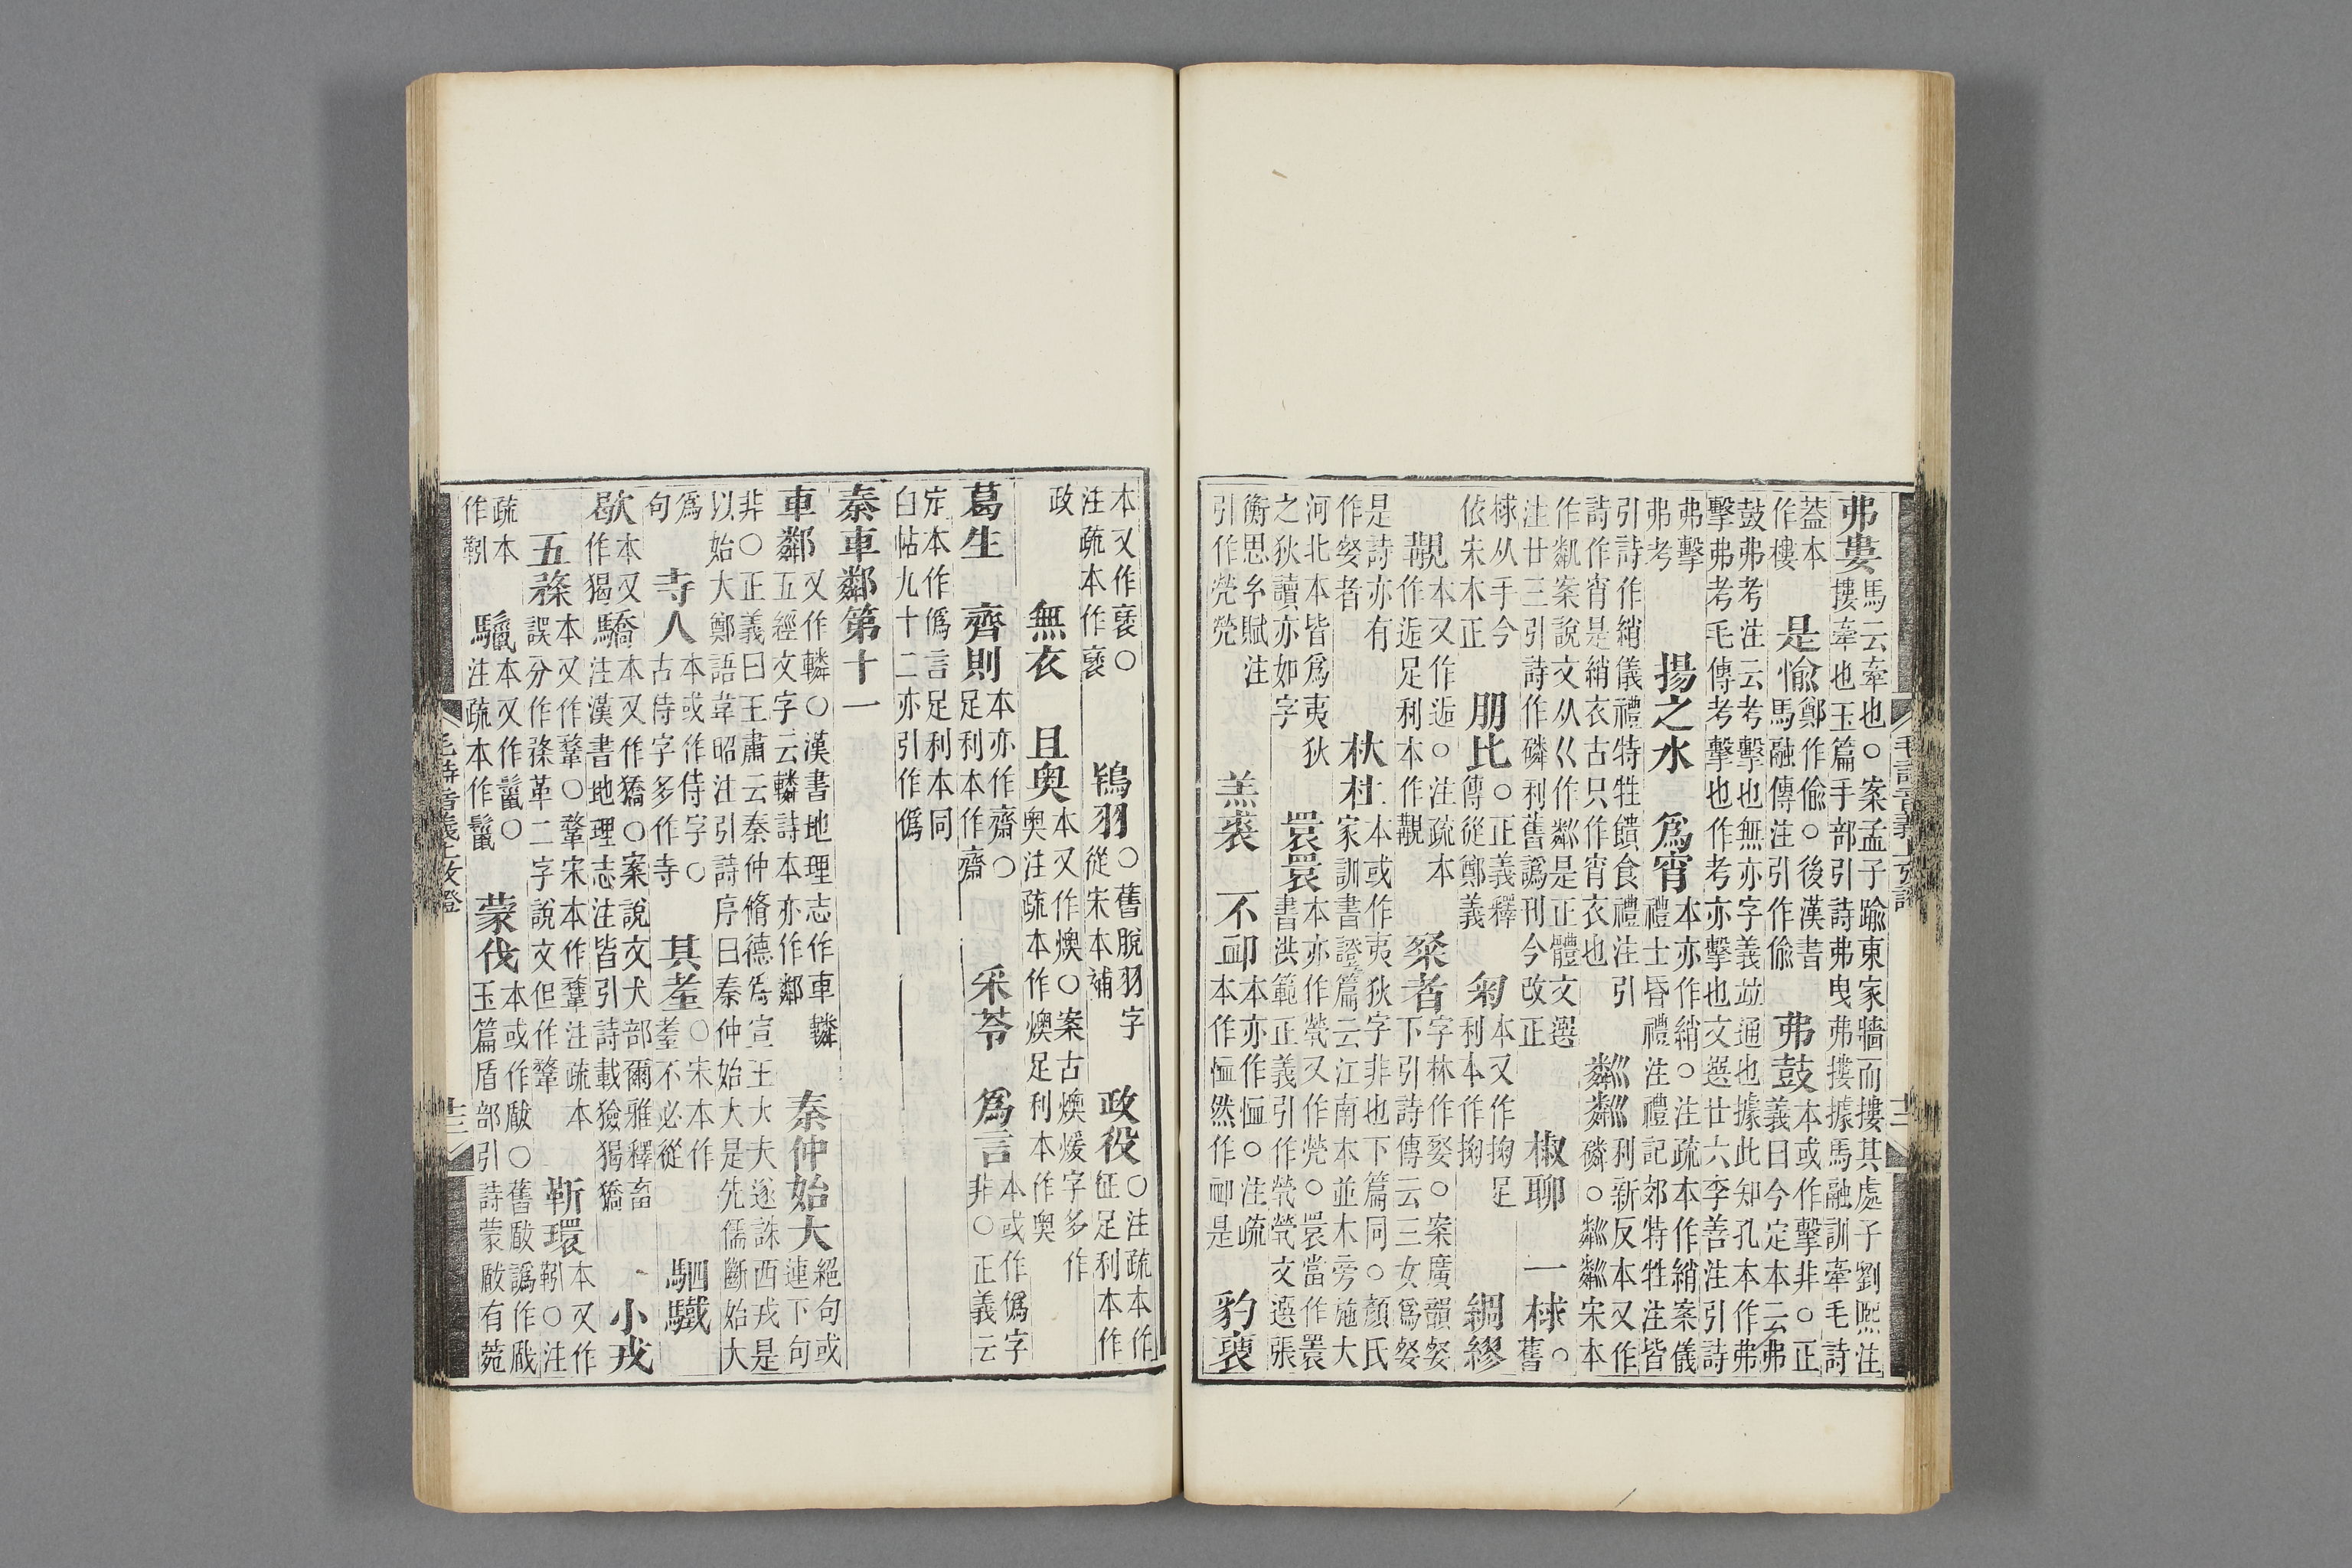 弗婁馬云牽也○案孟子踰東家牆而摟其處子劉熙注
摟牽也玉篇手部引詩弗曳弗摟據馬融訓牽毛詩
葢本
作樓
是愉鄭作偷○後漢書
馬融傳注引作偷
弗鼓本或作擊非○正
義曰今定本云弗
鼓弗考注云考擊也無亦字義竝通也據此知孔本作弗
擊弗考毛傳考擊也作考亦擊也文選廿六李善注引詩
弗擊
弗考
揚之水
爲宵本亦作綃○注疏本作綃案儀
禮士昏禮注禮記郊特牲注皆
引詩作綃儀禮特牲饋食禮注引
詩作宵是綃衣古只作宵衣也
粼粼利新反本又作
磷○粼粼宋本
作粼案說文从巜作粼是正體文選
注廿三引詩作磷利舊譌刊今改正
椒聊
一梂○
舊
梂从手今
依宋本正
朋比○正義釋
傳從鄭義
匊本又作掬足
利本作掬
綢繆
覯本又作逅○注疏本
作逅足利本作覯
粲者字林作㛑○案廣韻㛑
下引詩傳云三女爲㛑
是詩亦有
作㛑者
杕杜本或作夷狄字非也下篇同○顏氏
家訓書證篇云江南本並木旁施大
河北本皆爲夷狄
之狄讀亦如字
睘睘本亦作煢又作㷀○睘當作瞏
書洪範正義引作煢煢文選張
衡思玄賦注
引作煢煢
羔裘
不卹本亦作恤○注疏
本作恤然作卹是
豹褎
毛詩音義上攷證
十二
本又作褎○
注疏本作褎
鴇羽○舊脫羽字
從宋本補
政役○注疏本作
征足利本作
政
無衣
且奧本又作燠○案古燠煖字多作
奧注疏本作燠足利本作奧
葛生
齊則本亦作齋○
足利本作齋
采苓
爲言本或作僞字
非○正義云
定本作僞言足利本同
白帖九十二亦引作僞
秦車鄰第十一
車鄰又作轔○漢書地理志作車轔
五經文字云轔詩本亦作鄰
秦仲始大絕句或
連下句
非○正義曰王肅云秦仲脩德爲宣王大夫遂誅西戎是
以始大鄭語韋昭注引詩序曰秦仲始大是先儒斷始大
爲
句
寺人本或作侍字○
古侍字多作寺
其耋○宋本作
耋不必從
駟驖
歇本又
作猲
驕本又作獢○案說文犬部爾雅釋畜
注漢書地理志注皆引詩載獫猲獢
小戎
五楘本又作鞪○鞪宋本作鞪注疏本
誤分作 革二字說文但作鞪
靳環本又作
靷○注
疏本
作靷
本又作鬣○
注疏本作鬣
蒙伐本或作瞂○舊瞂譌作
玉篇盾部引詩蒙瞂有菀
毛詩音義上攷證
十三